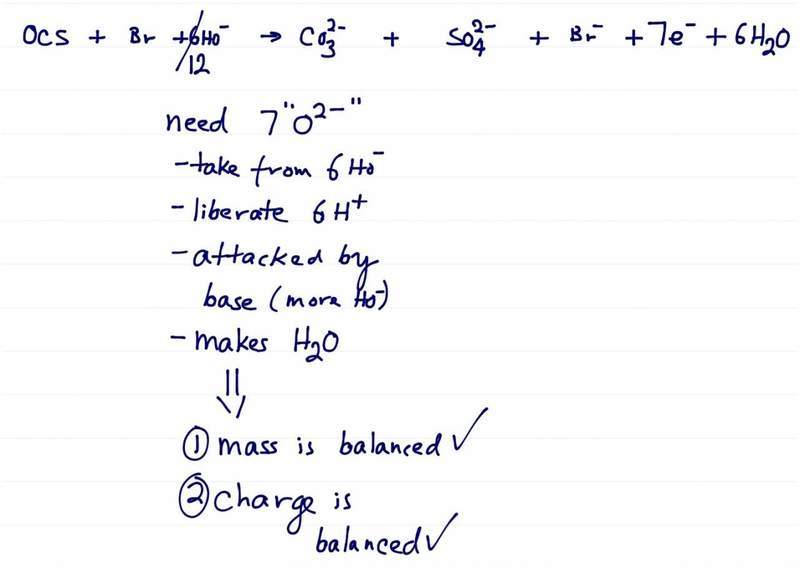 OCS + Br + 6HO⁻ → CO₃²⁻ + SO₄²⁻ + Br⁻ + 7e⁻ + 6H₂O
12
need 7 "O²⁻"
- take from 6 HO⁻
- liberate 6 H⁺
- attacked by
base (more HO⁻)
- makes H₂O
⇓
① mass is balanced ✓
② charge is
balanced ✓